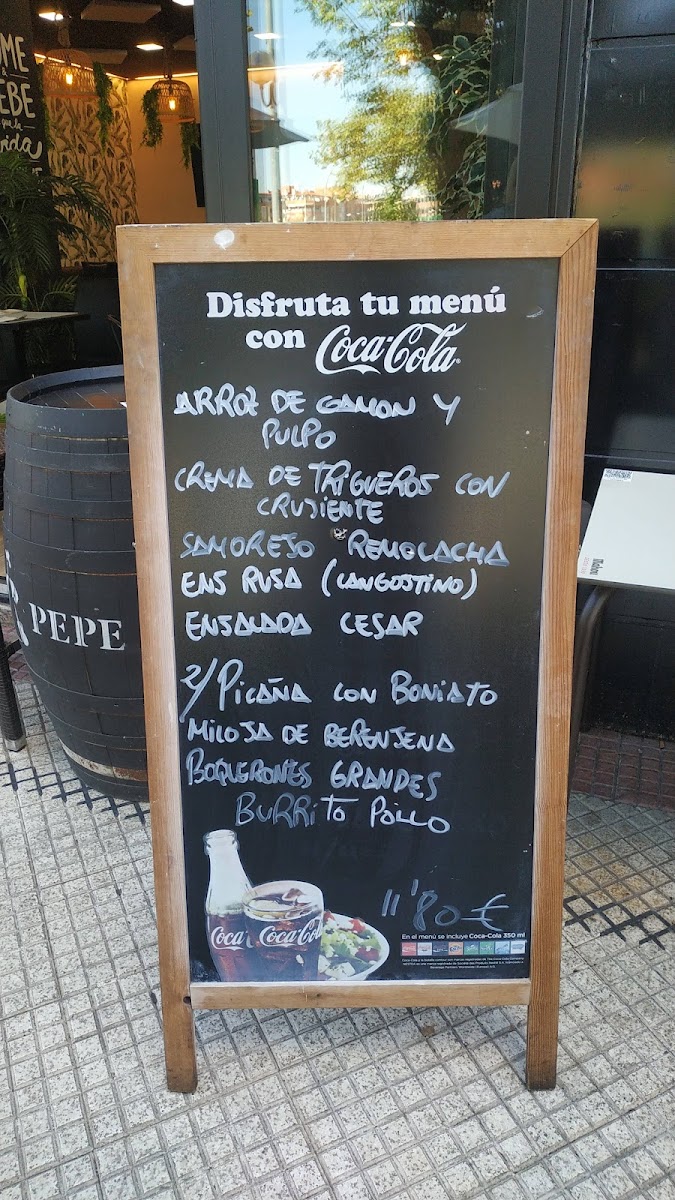 OME
&
EBE
que la
vida
Disfruta tu menú
con Coca-Cola
ARROZ DE GAMON Y
PULPO
CREMA DE TRIGUEROS CON
CRUJIENTE
SAMOREJO REMOLACHA
ENS RUSA (LANGOSTINO)
ENSALADA CESAR
2/ PICAÑA CON BONIATO
MILOJA DE BERENJENA
BOQUERONES GRANDES
BURRITO POLLO
11'80 €
En el menú se incluye Coca-Cola 350 ml
Coca-Cola
Coca-Cola
PEPE
Mahou